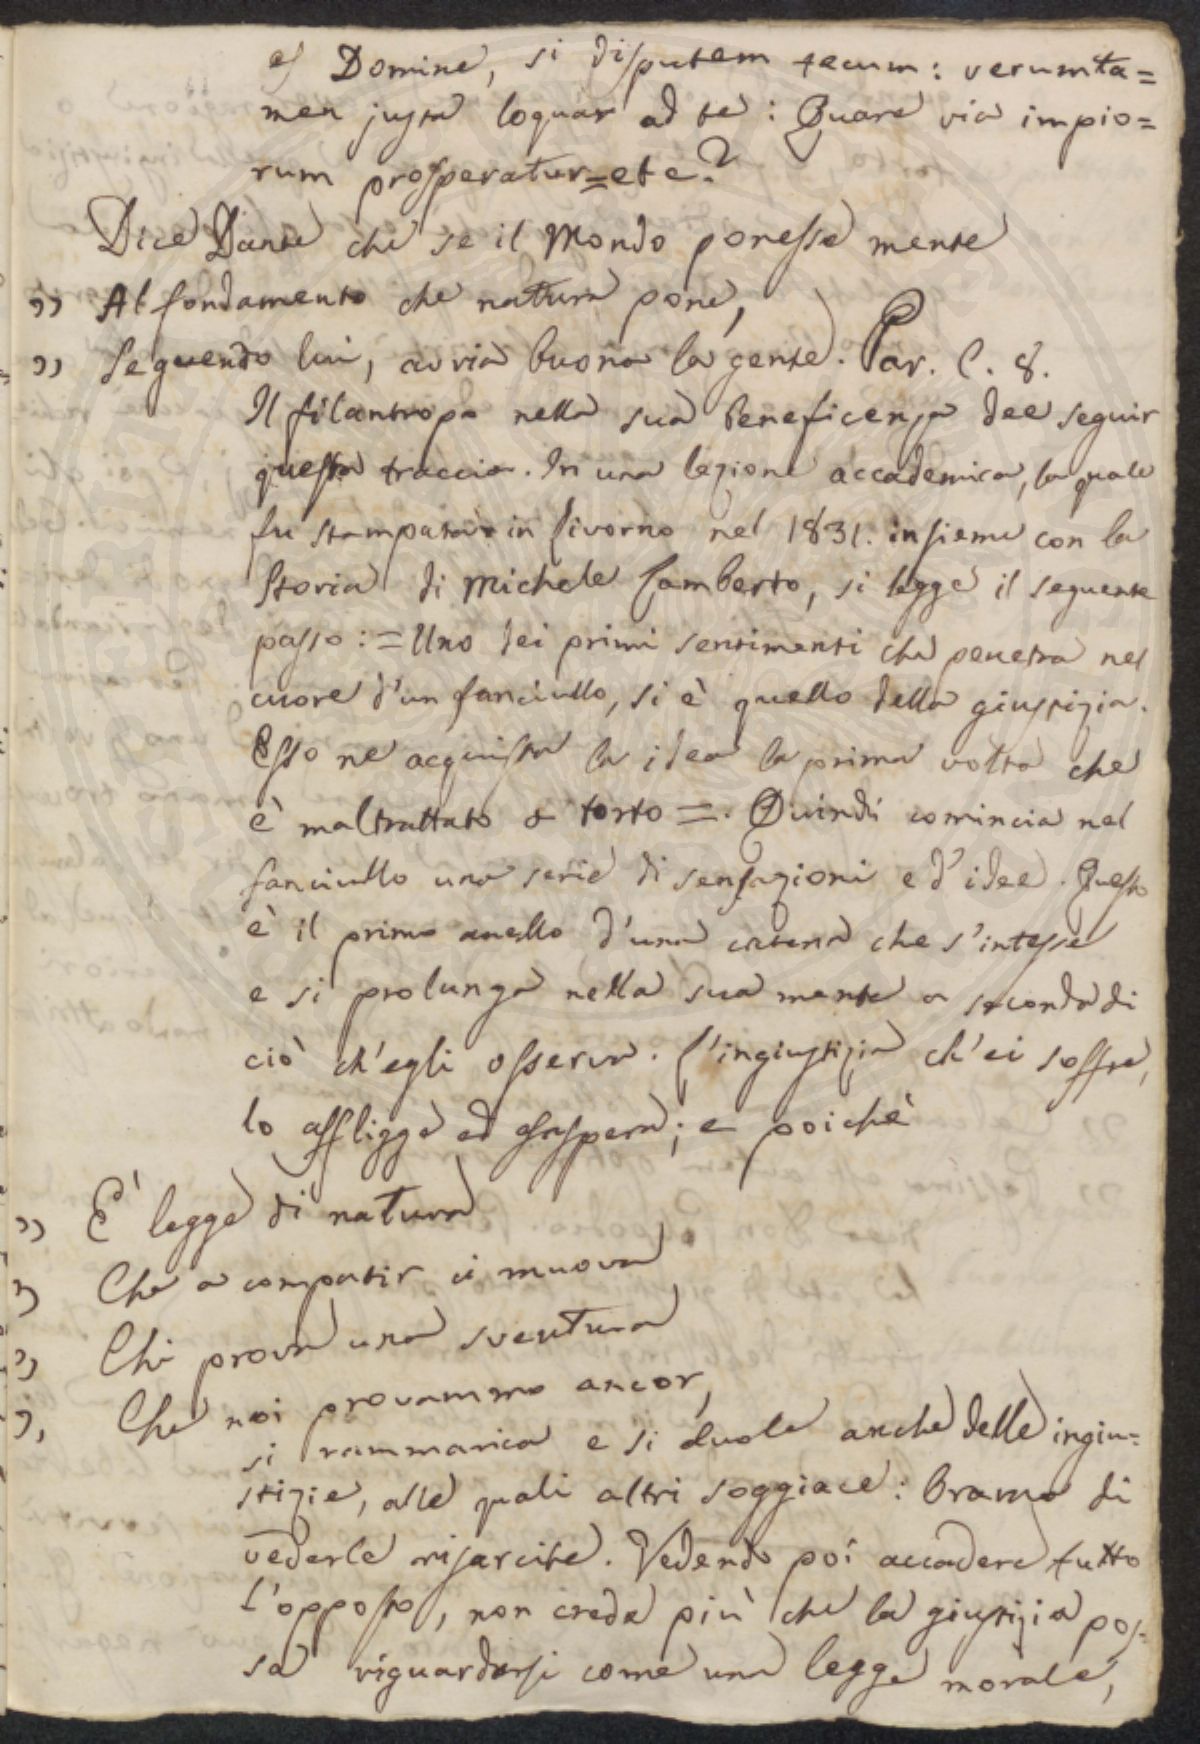 es Domine, si disputem tecum: verumta=
men justa loquar ad te: Quare via impio=
rum prosperatur=etc?
Dice Dante che se il Mondo ponesse mente
" Al fondamento che natura pone,
" Seguendo lui, avria buona la gente. Par. C. 8.
Il filantropo nella sua beneficenza dee seguir
questa traccia. In una lezione accademica, la quale
fu stampata in Livorno nel 1831. insieme con la
Storia di Michele Lamberto, si legge il seguente
passo: = Uno dei primi sentimenti che penetra nel
cuore d'un fanciullo, si è quello della giustizia.
Esso ne acquista la idea la prima volta che
è maltrattato a torto =. Quindi comincia nel
fanciullo una serie di sensazioni e d'idee. Questo
è il primo anello d'una catena che s'intesse
e si prolunga nella sua mente a seconda di
ciò ch'egli osserva. L'ingiustizia ch'ei soffre,
lo affligge ed esaspera; e poichè
" E' legge di natura
" Che a compatir ci muova
" Chi prova una sventura
" Che noi provammo ancor,
si rammarica e si duole anche delle ingiu=
stizie, alle quali altri soggiace: Brama di
vederle risarcite. Vedendo poi accadere tutto
l'opposto, non crede più che la giustizia pos=
sa riguardarsi come una legge morale,